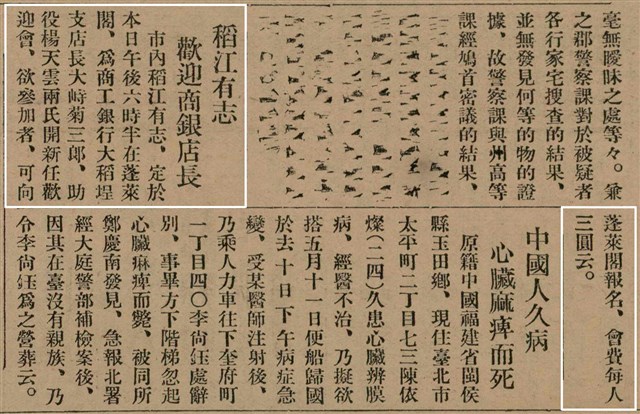 毫無曖昧之處等々。兼
之郡警察課對於被疑者
各行家宅搜查的結果、
並無發見何等的物的證
據、故警察課與州高等
課經鳩首密議的結果、
稻江有志
歡迎商銀店長
市內稻江有志、定於
本日午後六時半在蓬萊
閣、爲商工銀行大稻埕
支店長大峙菊三郎、助
役楊天雲兩氏開新任歡
迎會、欲參加者、可向
蓬萊閣報名、會費每人
三圓云。
中國人久病
心臟麻痺而死
原籍中國福建省閩侯
縣玉田鄉、現住臺北市
太平町二丁目七三陳依
燦(二四)久患心臟辨膜
病、經醫不治、乃擬欲
搭五月十一日便船歸國
於去十日下午病症急
變、受某醫師注射後、
乃乘人力車往下奎府町
一丁目四〇李尙鈺處辭
別、事畢方下階梯忽起
心臟痳痺而斃、被同所
鄭慶南發見、急報北署
經大庭警部補檢案後、
因其在臺沒有親族、乃
令李尙鈺爲之營葬云。